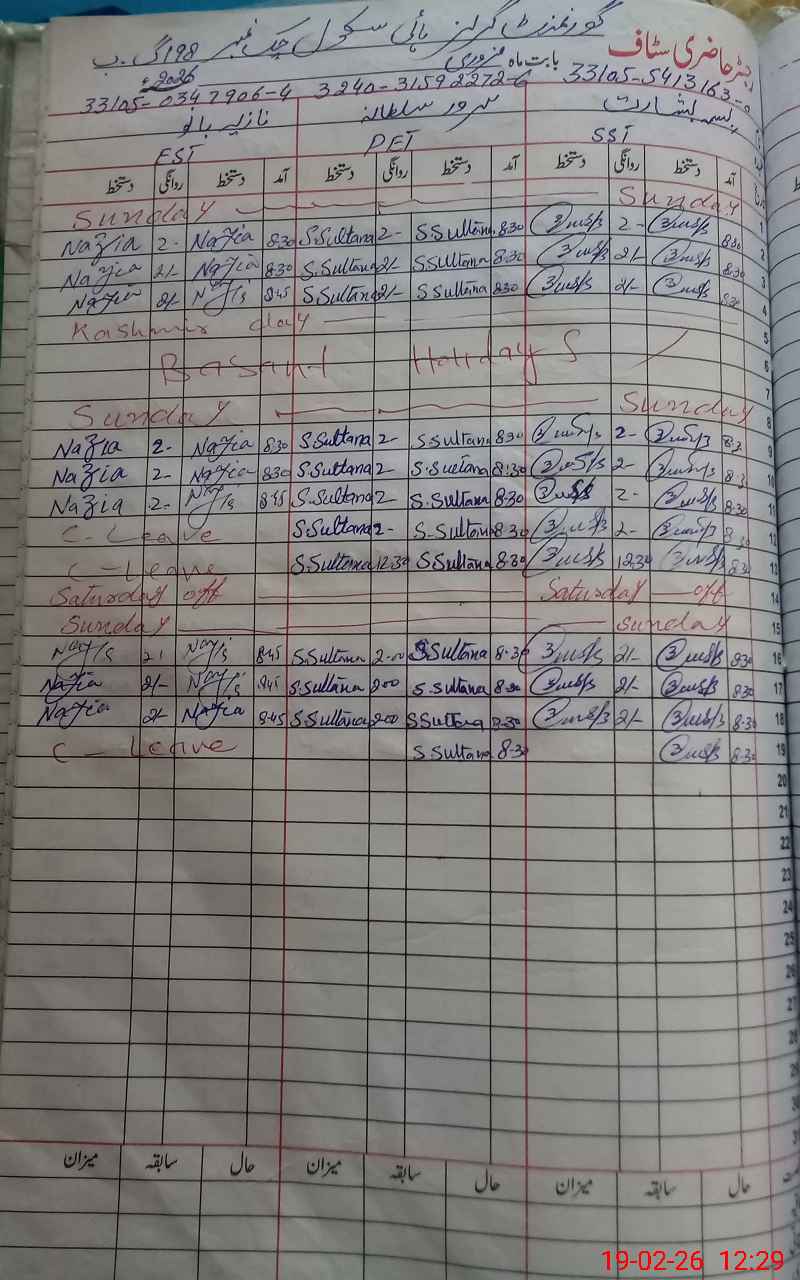 گورنمنٹ گرلز ہائی سکول چک نمبر 198 گ۔ب
رجسٹر حاضری سٹاف بابت ماہ فروری 2026ء
33105-5413163- 3240-31592272-6 33105-0347906-4
بشارت سرور سلطانہ نازیہ بانو
SST PET EST
آمد دستخط روانگی دستخط آمد دستخط روانگی دستخط آمد دستخط روانگی دستخط
Sunday Sunday 1
Nazia 2- Nazia 8:30 S.Sultana 2- S.Sultana 8:30 2- 8:30 2
Nazia 2/- Nazia 8:30 S.Sultana 2/- S.Sultana 8:30 2/- 8:30 3
Nazia 2/- Nazia 8:45 S.Sultana 2/- S.Sultana 8:30 2/- 8:30 4
Kashmir day 5
6
Basant Holidays
7
Sunday Sunday 8
Nazia 2- Nazia 8:30 S.Sultana 2- S.Sultana 8:30 2- 8:3 9
Nazia 2- Nazia 8:30 S.Sultana 2- S.Sultana 8:30 2- 8:3 10
Nazia 2- Nazia 8:45 S.Sultana 2- S.Sultana 8.30 2- 8.30 11
C-Leave S.Sultana 2- S.Sultana 8.30 2- 8.30 12
C-Leave S.Sultana 12.30 S.Sultana 8.30 12.30 8.30 13
Saturday off Saturday off 14
Sunday Sunday 15
Nazia 2/- Nazia 8.45 S.Sultana 2.00 S.Sultana 8.30 2/- 8.30 16
Nazia 2/- Nazia 8.45 S.Sultana 2.00 S.Sultana 8.30 2/- 8.30 17
Nazia 2/- Nazia 8.45 S.Sultana 2.00 S.Sultana 8.30 2/- 8.30 18
C-Leave S.Sultana 8.30 8.30 19
20
21
22
23
24
25
26
27
28
29
حال سابقہ میزان حال سابقہ میزان حال سابقہ میزان
19-02-26 12:29